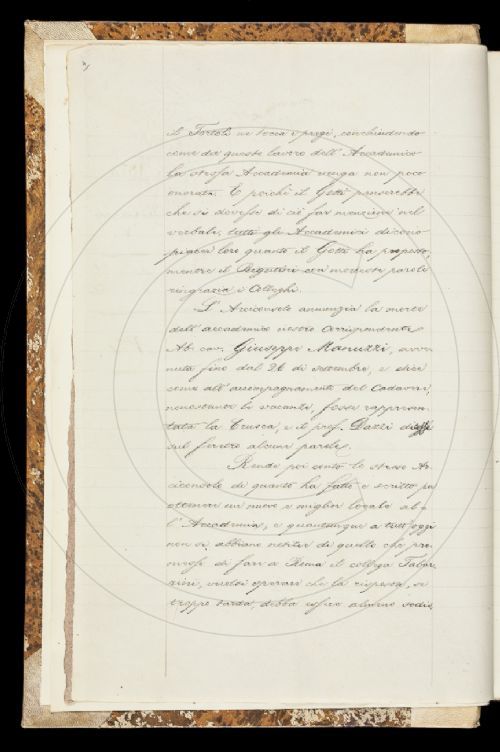 il Tortoli ne tocca i pregi, conchiudendo
come da questo lavoro dell'Accademico
la stessa Accademia venga non poco
onorata. E poichè il Gotti penserebbe
che si dovesse di ciò far menzione nel
verbale, tutti gli Accademici dicono
piacer loro quanto il Gotti ha proposto,
mentre il con modeste parole
ringrazia i Colleghi.
L'Arciconsolo annunzia la morte
dell'accademico nostro Corrispondente
Ab. cav. Giuseppe Manuzzi, avve-
nuta fino dal 26 di settembre, e dice
come all'accompagnamento del Cadavere,
nonostante le vacanze, fosse rappresen-
tata la Crusca, e il prof. Dazzi dicesse
sul feretro alcune parole.
Rende poi conto lo stesso Ar-
ciconsolo di quanto ha fatto e scritto per
ottenere un nuovo e miglior locale al-
l'Accademia, e quantunque a tutt'oggi
non si abbiano notizie di quello che pro-
messe di fare a Roma il collega Tabar-
rini, vuolsi sperare che la risposta, se
troppo tarda, debba essere almeno sodis